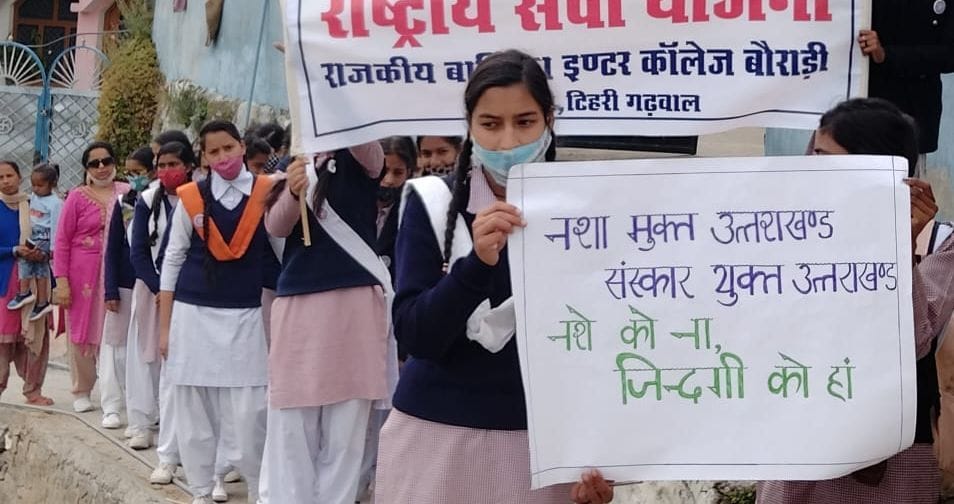 राष्ट्रीय सेवा योजना
राजकीय इण्टर कॉलेज बौराड़ी
टिहरी गढ़वाल
नशा मुक्त उत्तराखण्ड
संस्कार युक्त उत्तराखण्ड
नशे को ना,
जिन्दगी को हां